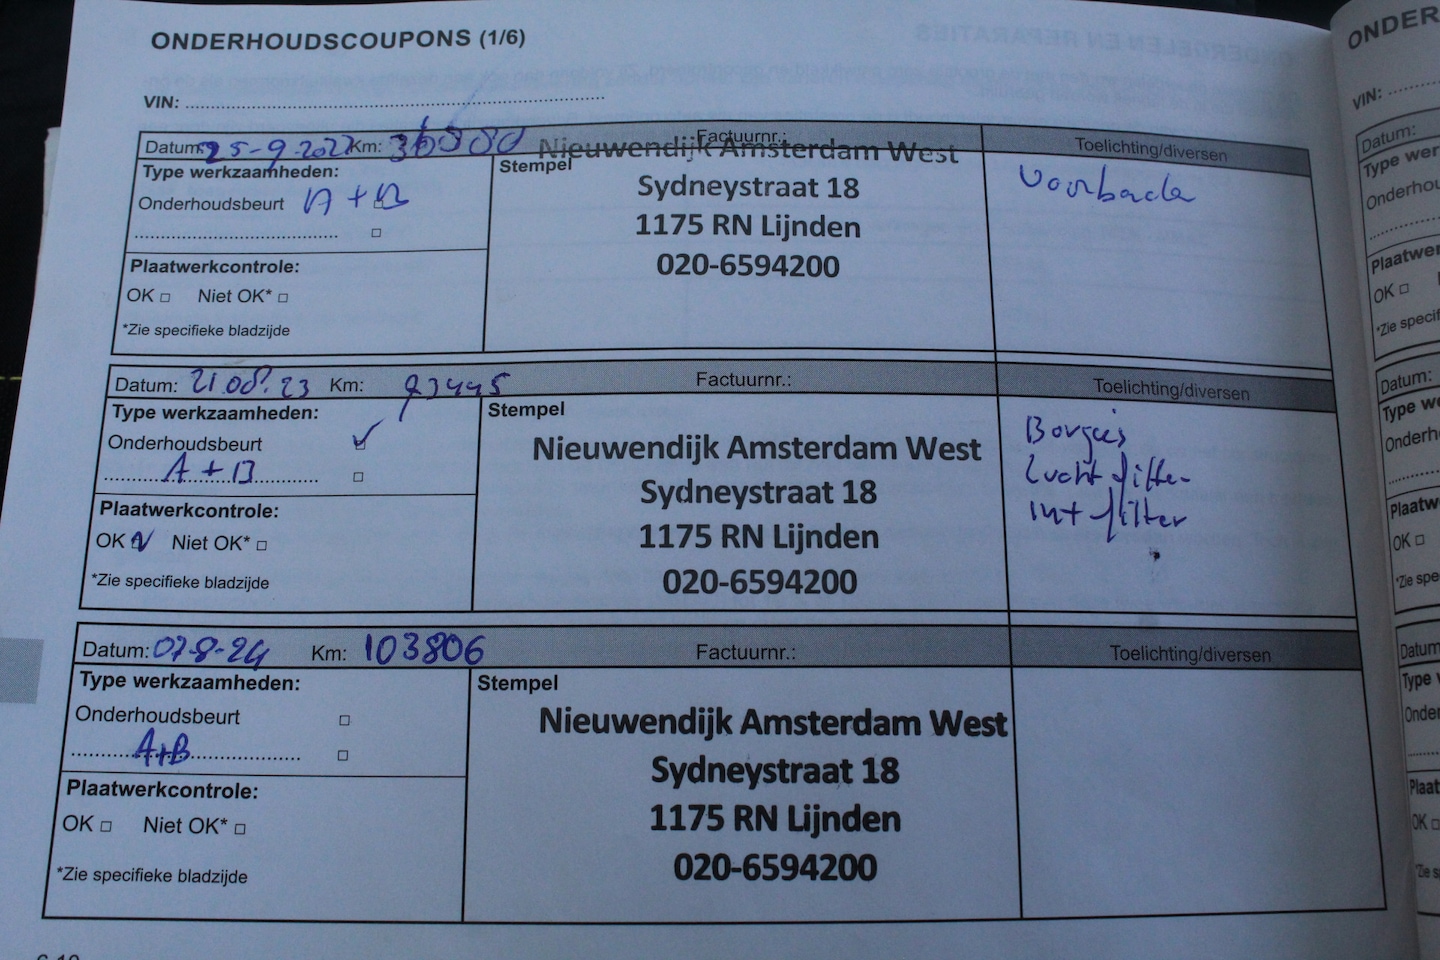 ONDERHOUDSCOUPONS (1/6)
VIN:
Datum: 25-9-2022 Km: Factuurnr.: Toelichting/diversen
Type werkzaamheden:
Onderhoudsbeurt A + B
Plaatwerkcontrole:
OK □ Niet OK* □
*Zie specifieke bladzijde
Stempel
Nieuwendijk Amsterdam West
Sydneystraat 18
1175 RN Lijnden
020-6594200
Datum: 21.08.23 Km: 73445 Factuurnr.: Toelichting/diversen
Type werkzaamheden:
Onderhoudsbeurt
A + B
Plaatwerkcontrole:
OK Niet OK* □
*Zie specifieke bladzijde
Stempel
Nieuwendijk Amsterdam West
Sydneystraat 18
1175 RN Lijnden
020-6594200
Luchtfilter
Int filter
Datum: 07-8-24 Km: 103806 Factuurnr.: Toelichting/diversen
Type werkzaamheden:
Onderhoudsbeurt □
A+B □
Plaatwerkcontrole:
OK □ Niet OK* □
*Zie specifieke bladzijde
Stempel
Nieuwendijk Amsterdam West
Sydneystraat 18
1175 RN Lijnden
020-6594200
ONDER
VIN:
Datum:
Type wer
Onderhou
Plaatwerk
OK □
*Zie specif
Datum:
Type we
Onderh
Plaatw
OK □
*Zie spe
Datum
Type
Onder
Plaat
OK □